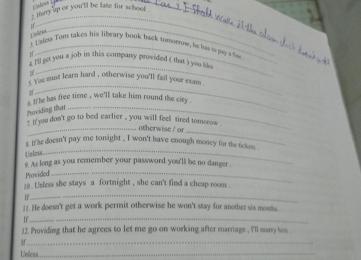 Unless
I should
2. Hurry up or you'll be late for school .
If
3. Unless Tom takes his library book back tomorrow, he has to pay a fine.
If
4. I'll get you a job in this company provided ( that ) you like
If
5. You must learn hard , otherwise you'll fail your exam .
If
6. If he has free time , we'll take him round the city .
Providing that
7. If you don't go to bed earlier , you will feel tired tomorrow
otherwise / or
8. If he doesn't pay me tonight , I won't have enough money for the tickets
Unless
9. As long as you remember your password you'll be no danger .
Provided
10 . Unless she stays a fortnight , she can't find a cheap room .
If
11. He doesn't get a work permit otherwise he won't stay for another six months
If
12. Providing that he agrees to let me go on working after marriage , I'll marry him .
If
Unless